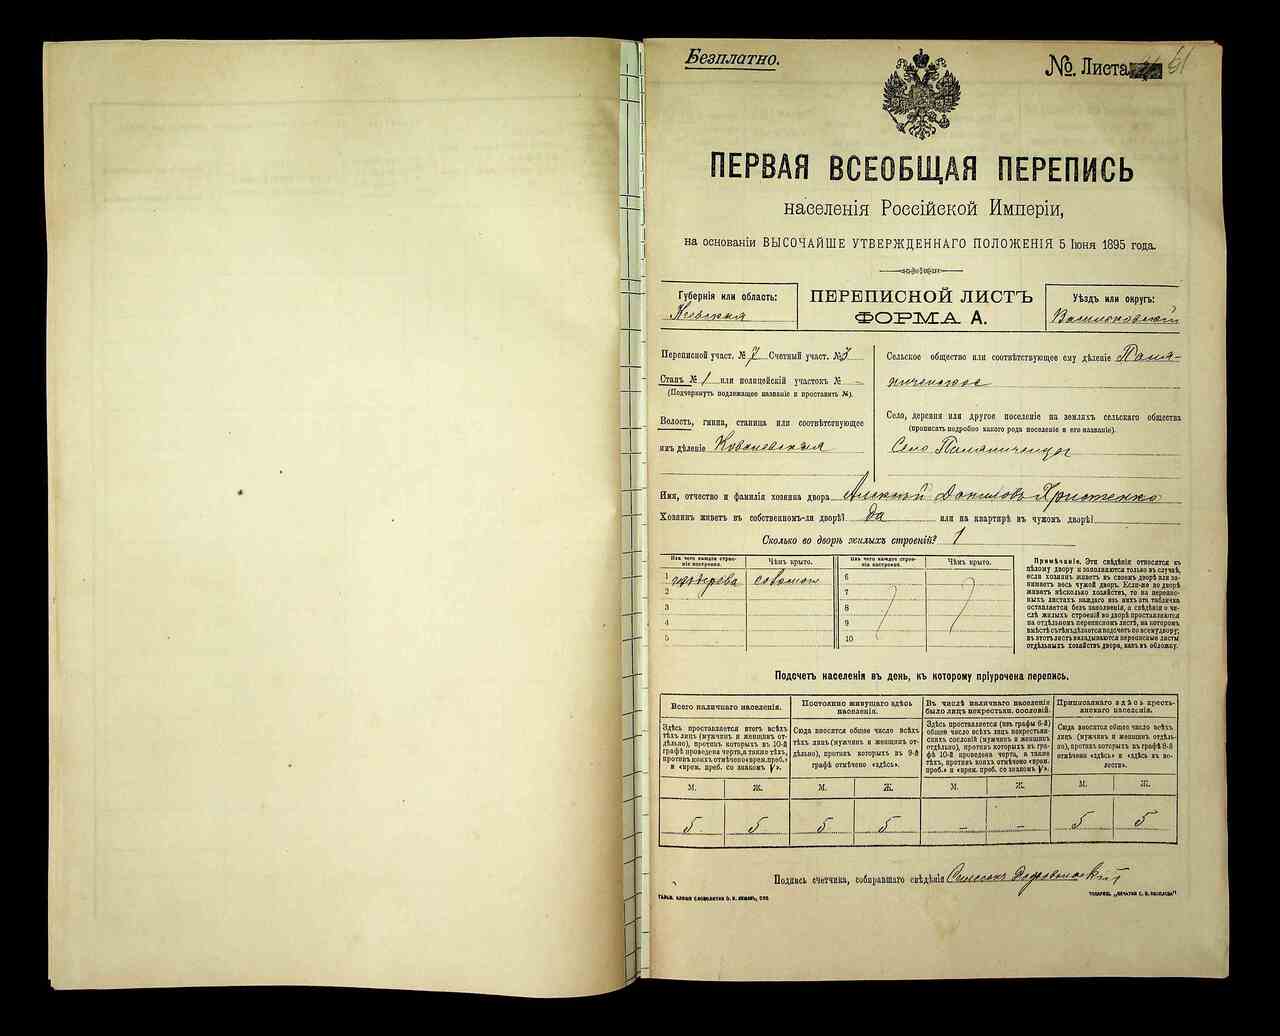 Безплатно.
№. Листа
ПЕРВАЯ ВСЕОБЩАЯ ПЕРЕПИСЬ
населенія Россійской Имперіи,
на основаніи ВЫСОЧАЙШЕ УТВЕРЖДЕННАГО ПОЛОЖЕНІЯ 5 Іюня 1895 года.
Губернія или область:
Кіевская
ПЕРЕПИСНОЙ ЛИСТЪ
ФОРМА А.
Уѣздъ или округъ:
Васильковскій
Переписной участ. № 7 Счетный участ. № 3
Станъ № 1 или полицейскій участокъ № –
(Подчеркнуть подлежащее названіе и проставить №).
Волость, гмина, станица или соотвѣтствующее
имъ дѣленіе Ковалевская
Сельское общество или соотвѣтствующее ему дѣленіе
Село, деревня или другое поселеніе на земляхъ сельскаго общества
(прописать подробно какого рода поселеніе и его названіе).
Село
Имя, отчество и фамилія хозяина двора Алексѣй Даниловъ Христенко
Хозяинъ живетъ въ собственномъ-ли дворѣ? да или на квартирѣ въ чужомъ дворѣ?
Сколько во дворѣ жилыхъ строеній? 1
Изъ чего каждое строе-
ніе построено.
Чѣмъ крыто.
1 изъ дерева соломою
2
3
4
5
Изъ чего каждое строе-
ніе построено.
Чѣмъ крыто.
6
7
8
9
10
Примѣчаніе. Эти свѣдѣнія относятся къ
цѣлому двору и заполняются только въ случаѣ,
если хозяинъ живетъ въ своемъ дворѣ или за-
нимаетъ весь чужой дворъ. Если-же во дворѣ
живетъ нѣсколько хозяйствъ, то на перепис-
ныхъ листахъ каждаго изъ нихъ эта табличка
оставляется безъ заполненія, а свѣдѣнія о чи-
слѣ жилыхъ строеній во дворѣ проставляются
на отдѣльномъ переписномъ листѣ, на которомъ
вмѣстѣ съ тѣмъ дѣлается подсчетъ по всему двору;
въ этотъ листъ вкладываются переписные листы
отдѣльныхъ хозяйствъ двора, какъ въ обложку.
Подсчетъ населенія въ день, къ которому пріурочена перепись.
Всего наличнаго населенія.
Здѣсь проставляется итогъ всѣхъ
тѣхъ лицъ (мужчинъ и женщинъ от-
дѣльно), противъ которыхъ въ 10-й
графѣ проведена черта, а также тѣхъ,
противъ коихъ отмѣчено «врем. преб.»
и «врем. преб. со знакомъ V».
Постоянно живущаго здѣсь
населенія.
Сюда вносится общее число всѣхъ
тѣхъ лицъ (мужчинъ и женщинъ от-
дѣльно), противъ которыхъ въ 9-й
графѣ отмѣчено «здѣсь».
Въ числѣ наличнаго населенія
было лицъ некрестьян. сословій.
Здѣсь проставляется (изъ графы 6-й)
общее число всѣхъ лицъ некрестьян-
скихъ сословій (мужчинъ и женщинъ
отдѣльно), противъ которыхъ въ гра-
фѣ 10-й проведена черта, а также
тѣхъ, противъ коихъ отмѣчено «врем.
преб.» и «врем. преб. со знакомъ V».
Приписаннаго здѣсь кресть-
янскаго населенія.
Сюда вносится общее число всѣхъ
лицъ (мужчинъ и женщинъ отдѣль-
но), противъ которыхъ въ графѣ 8-й
отмѣчено «здѣсь» и «здѣсь въ во-
лости».
М. Ж. М. Ж. М. Ж. М. Ж.
5 5 5 5 – – 5 5
Подпись счетчика, собиравшаго свѣдѣнія